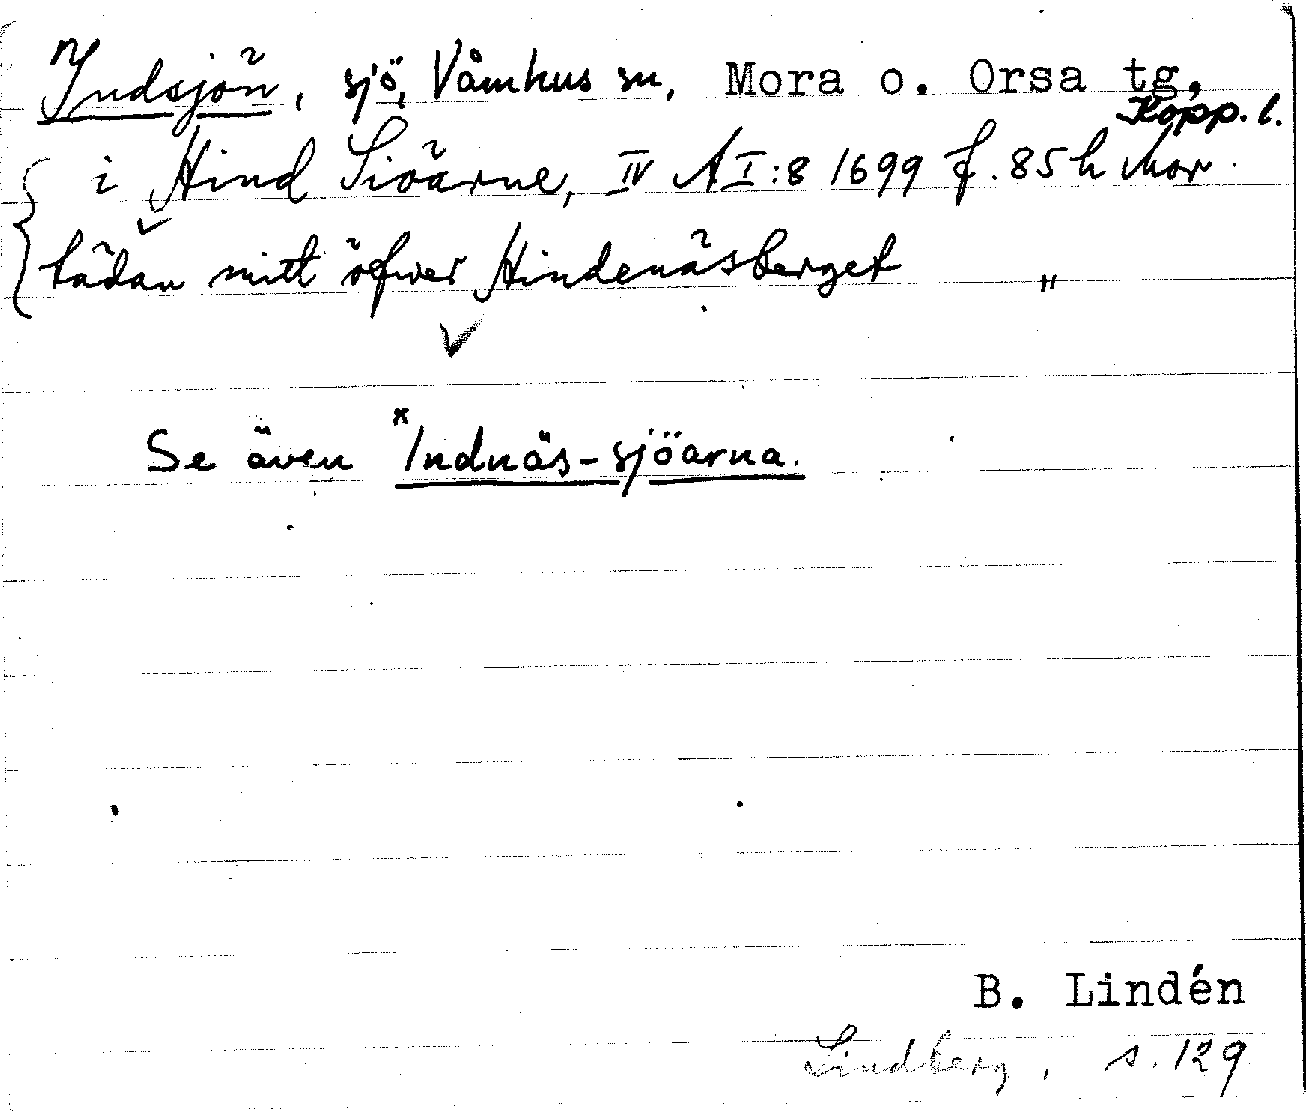 Indsjön, sjö, Våmhus sn, Mora o. Orsa tg,
Kopp. l.
i Hind Siöärne, IV A I:8 1699 f. 85 h Mor.
tädan mitt öfwer Hindenäsberget "
Se även *Indnäs-sjöarna.
B. Lindén
Lindberg, s. 129